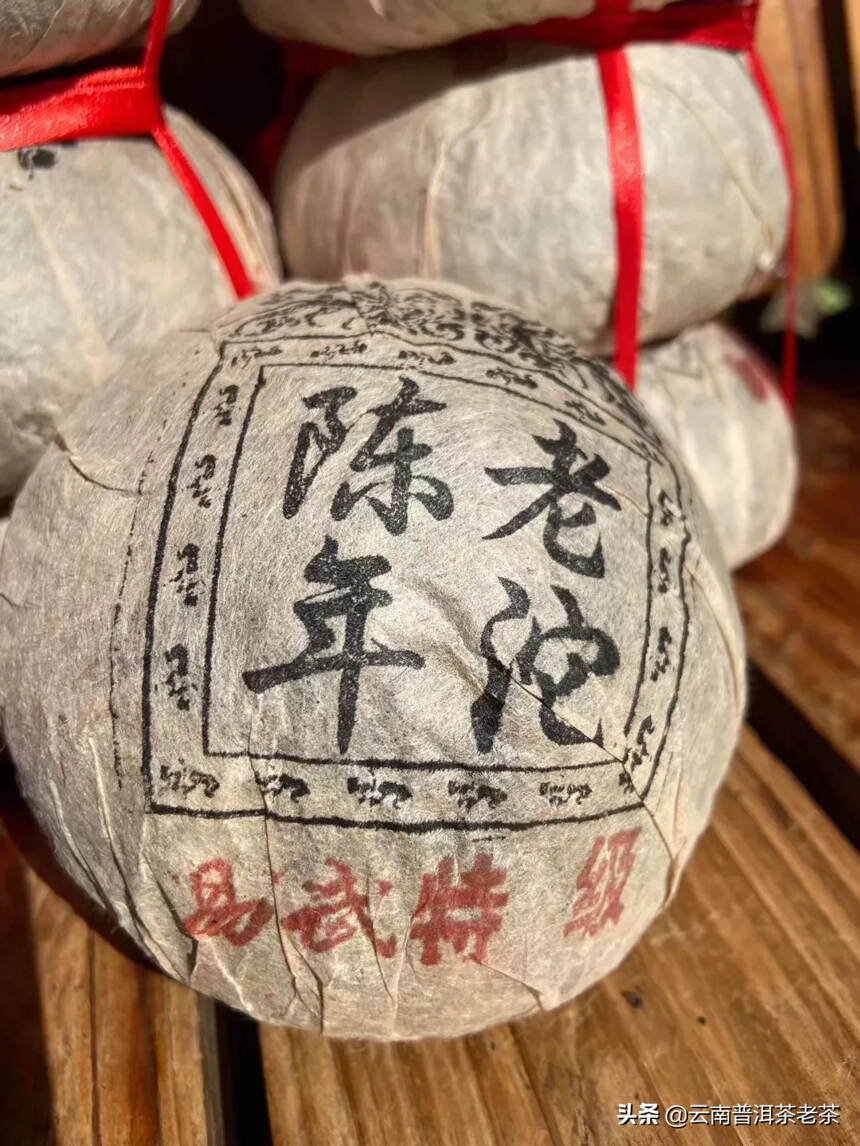 陈年
老沱
易武特级
头条 @云南普洱茶老茶